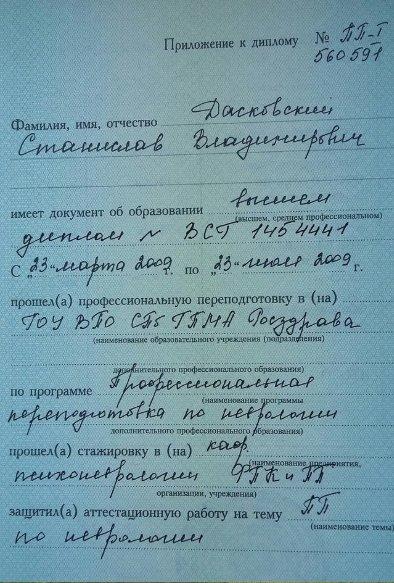 Приложение к диплому № ПП-I
560591
Фамилия, имя, отчество Дасковский
Станислав Владимирович
имеет документ об образовании высшем
(высшем, среднем профессиональном)
диплом № ВСТ 1454441
С „23“ марта 2009 г. по „23“ июля 2009 г.
прошел(а) профессиональную переподготовку в (на)
ГОУ ВПО СПб ГПМА Росздрава
(наименование образовательного учреждения (подразделения)
дополнительного профессионального образования)
по программе Профессиональная
(наименование программы
переподготовка по неврологии
дополнительного профессионального образования)
прошел(а) стажировку в (на) каф.
(наименование предприятия,
психоневрологии ФПК и ПП
организации, учреждения)
защитил(а) аттестационную работу на тему ПП
(наименование темы)
по неврологии